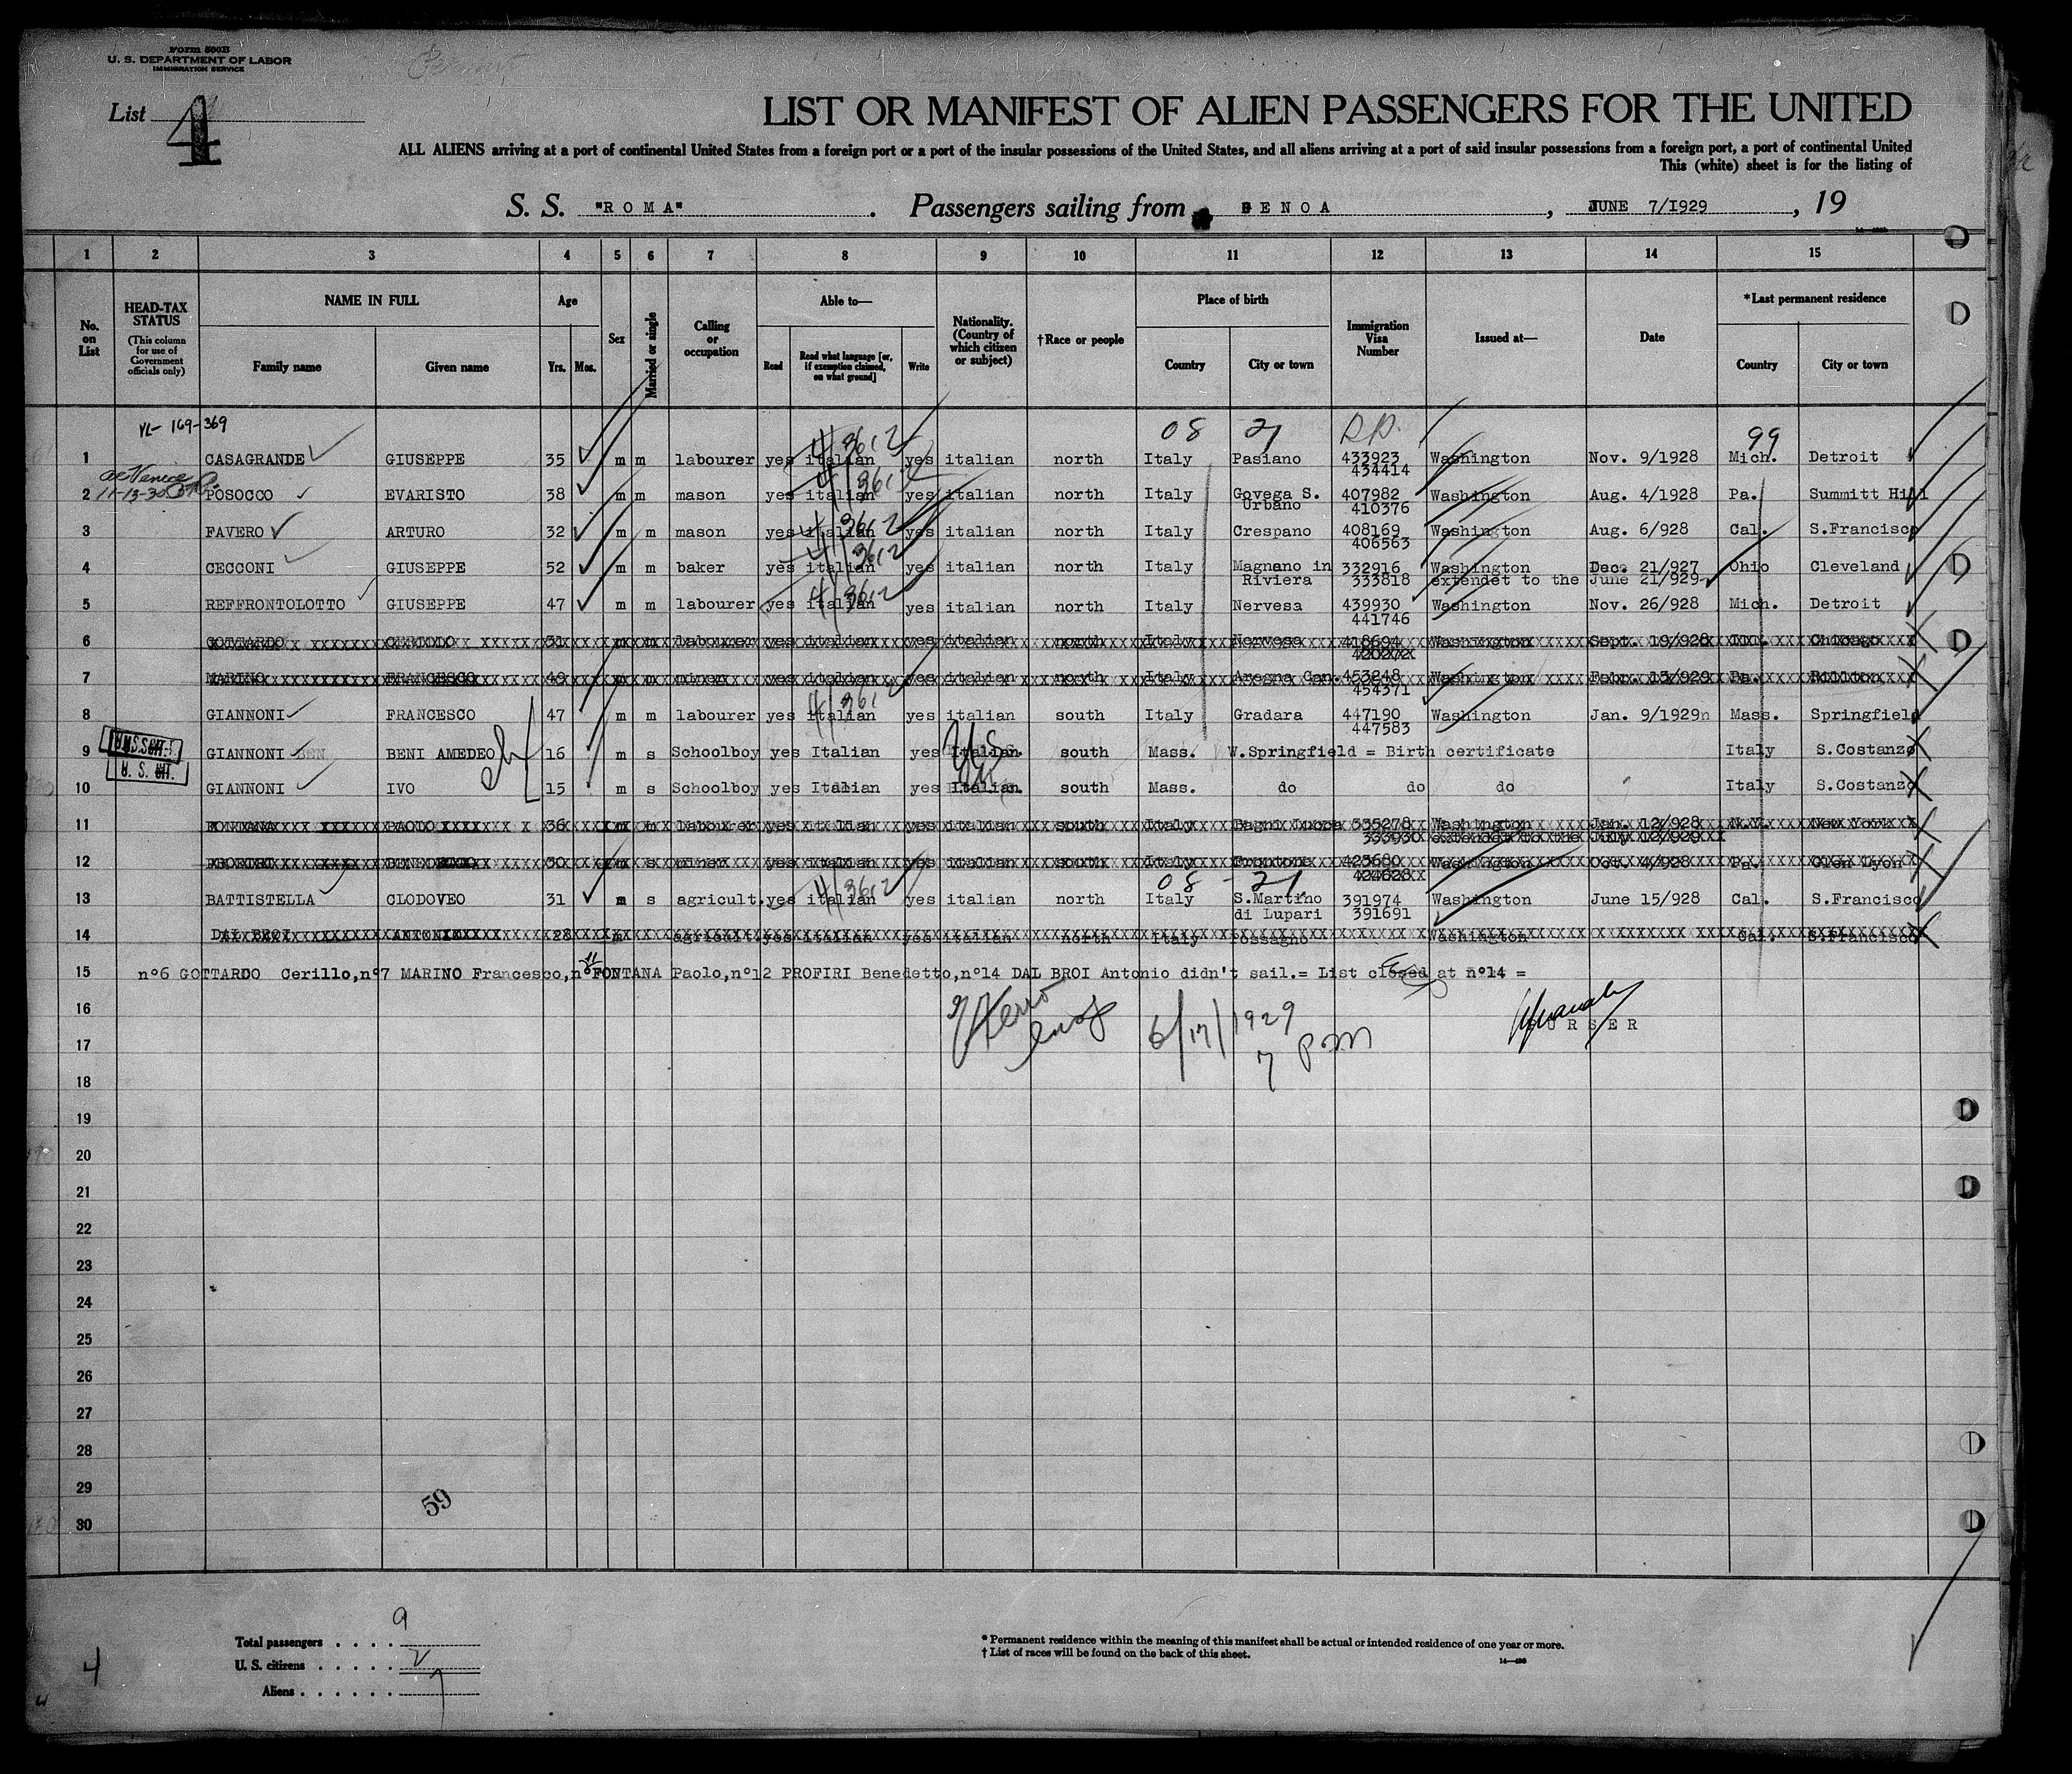 Form 500B
U. S. DEPARTMENT OF LABOR
IMMIGRATION SERVICE
List 4
LIST OR MANIFEST OF ALIEN PASSENGERS FOR THE UNITED
ALL ALIENS arriving at a port of continental United States from a foreign port or a port of the insular possessions of the United States, and all aliens arriving at a port of said insular possessions from a foreign port, a port of continental United
This (white) sheet is for the listing of
S. S. "ROMA". Passengers sailing from GENOA, JUNE 7/1929, 19
1 2 3 4 5 6 7 8 9 10 11 12 13 14 15
No. on List
HEAD-TAX STATUS (This column for use of Government officials only)
NAME IN FULL Family name Given name
Age Yrs. Mos.
Sex
Married or single
Calling or occupation
Able to— Read Read what language [or, if exemption claimed, on what ground] Write
Nationality. (Country of which citizen or subject)
†Race or people
Place of birth Country City or town
Immigration Visa Number
Issued at—
Date
*Last permanent residence Country City or town
169-369 08 21 99
1 CASAGRANDE GIUSEPPE 35 m m labourer yes italian yes italian north Italy Pasiano 433923 Washington Nov. 9/1928 Mich. Detroit
434414
11-13-30
2 POSOCCO EVARISTO 38 m m mason yes italian yes italian north Italy Govega S. 407982 Washington Aug. 4/1928 Pa. Summitt Hill
Urbano 410376
3 FAVERO ARTURO 32 m m mason yes italian yes italian north Italy Crespano 408169 Washington Aug. 6/928 Cal. S.Francisco
406563
4 CECCONI GIUSEPPE 52 m m baker yes italian yes italian north Italy Magnano in 332916 Washington Dec. 21/927 Ohio Cleveland
Riviera 333818 extendet to the June 21/929-
5 REFFRONTOLOTTO GIUSEPPE 47 m m labourer yes italian yes italian north Italy Nervesa 439930 Washington Nov. 26/928 Mich. Detroit
441746
6 GOTTARDO CERILLO 31 m m labourer yes italian yes italian north Italy Nervesa 418694 Washington Sept. 19/928 Ill. Chicago
420272
7 MARINO FRANCESCO 49 m m miner yes italian yes italian north Italy Aregna Can. 453248 Washington Febr. 15/929 Pa.
454371
8 GIANNONI FRANCESCO 47 m m labourer yes italian yes italian south Italy Gradara 447190 Washington Jan. 9/1929n Mass. Springfield
447583
9 GIANNONI BENI AMEDEO 16 m s Schoolboy yes Italian yes Italian U.S. south Mass. W.Springfield = Birth certificate Italy S.Costanzo
U. S. CIT.
10 GIANNONI IVO 15 m s Schoolboy yes Italian yes Italian south Mass. do do do Italy S.Costanzo
11 FONTANA PAOLO 36 m m labourer yes italian yes italian south Italy Bagni Lucca 335278 Washington Jan. 12/928 N.Y. New York
333930 extended to the July 12/929
12 PROFIRI BENEDETTO 30 m s miner yes italian yes italian south Italy Frontone 423680 Washington Oct. 4/928 Pa. Glen Lyon
424628
08 - 21
13 BATTISTELLA CLODOVEO 31 m s agricult. yes italian yes italian north Italy S.Martino 391974 Washington June 15/928 Cal. S.Francisco
di Lupari 391691
14 DAL BROI ANTONIO 28 m agricult. yes italian yes italian north Italy Possagno Washington Cal. S.Francisco
15 n°6 GOTTARDO Cerillo,n°7 MARINO Francesco,n°11 FONTANA Paolo,n°12 PROFIRI Benedetto,n°14 DAL BROI Antonio didn't sail.= List closed at n°14 =
16
PURSER
6/17/1929
7 pm
17
18
19
20
21
22
23
24
25
26
27
28
29
59
30
Total passengers . . . . 9
U. S. citizens . . . . . 2
Aliens . . . . . . 7
4
* Permanent residence within the meaning of this manifest shall be actual or intended residence of one year or more.
† List of races will be found on the back of this sheet.